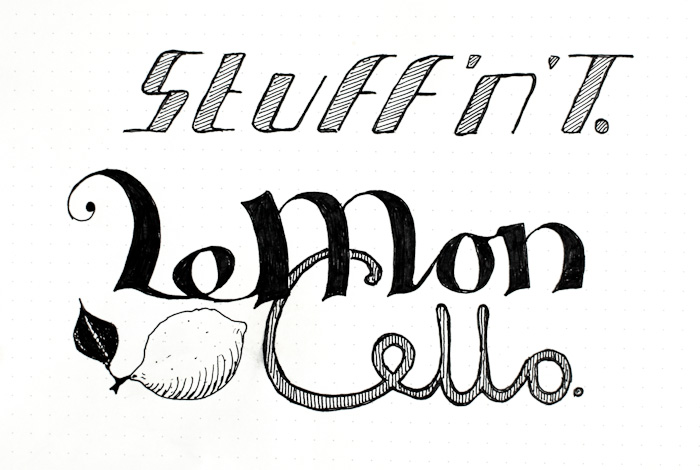 Stuff'n'T.
LeMon
Cello.